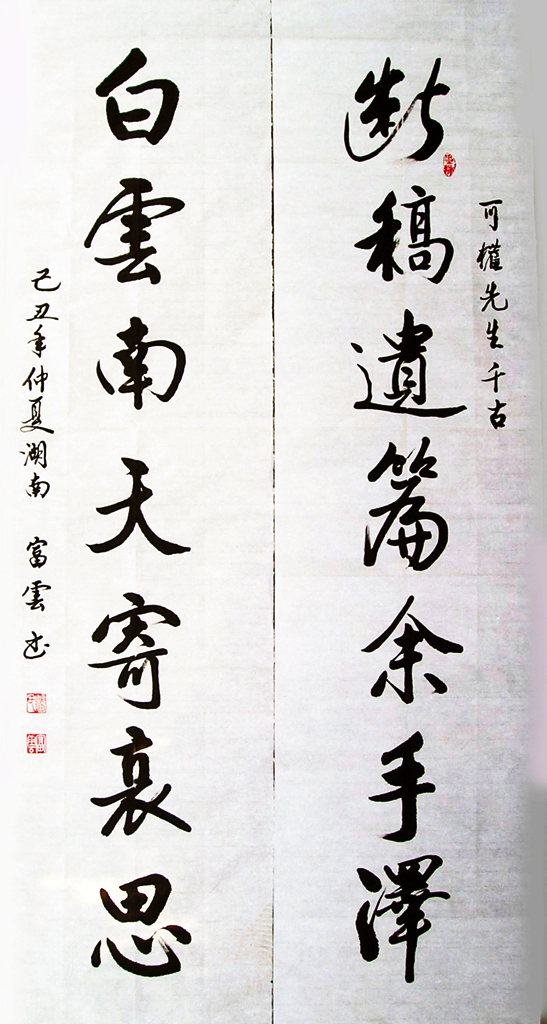 可權先生千古
斷稿遺篇余手澤
白雲南天寄哀思
己丑年仲夏湖南 富雲书